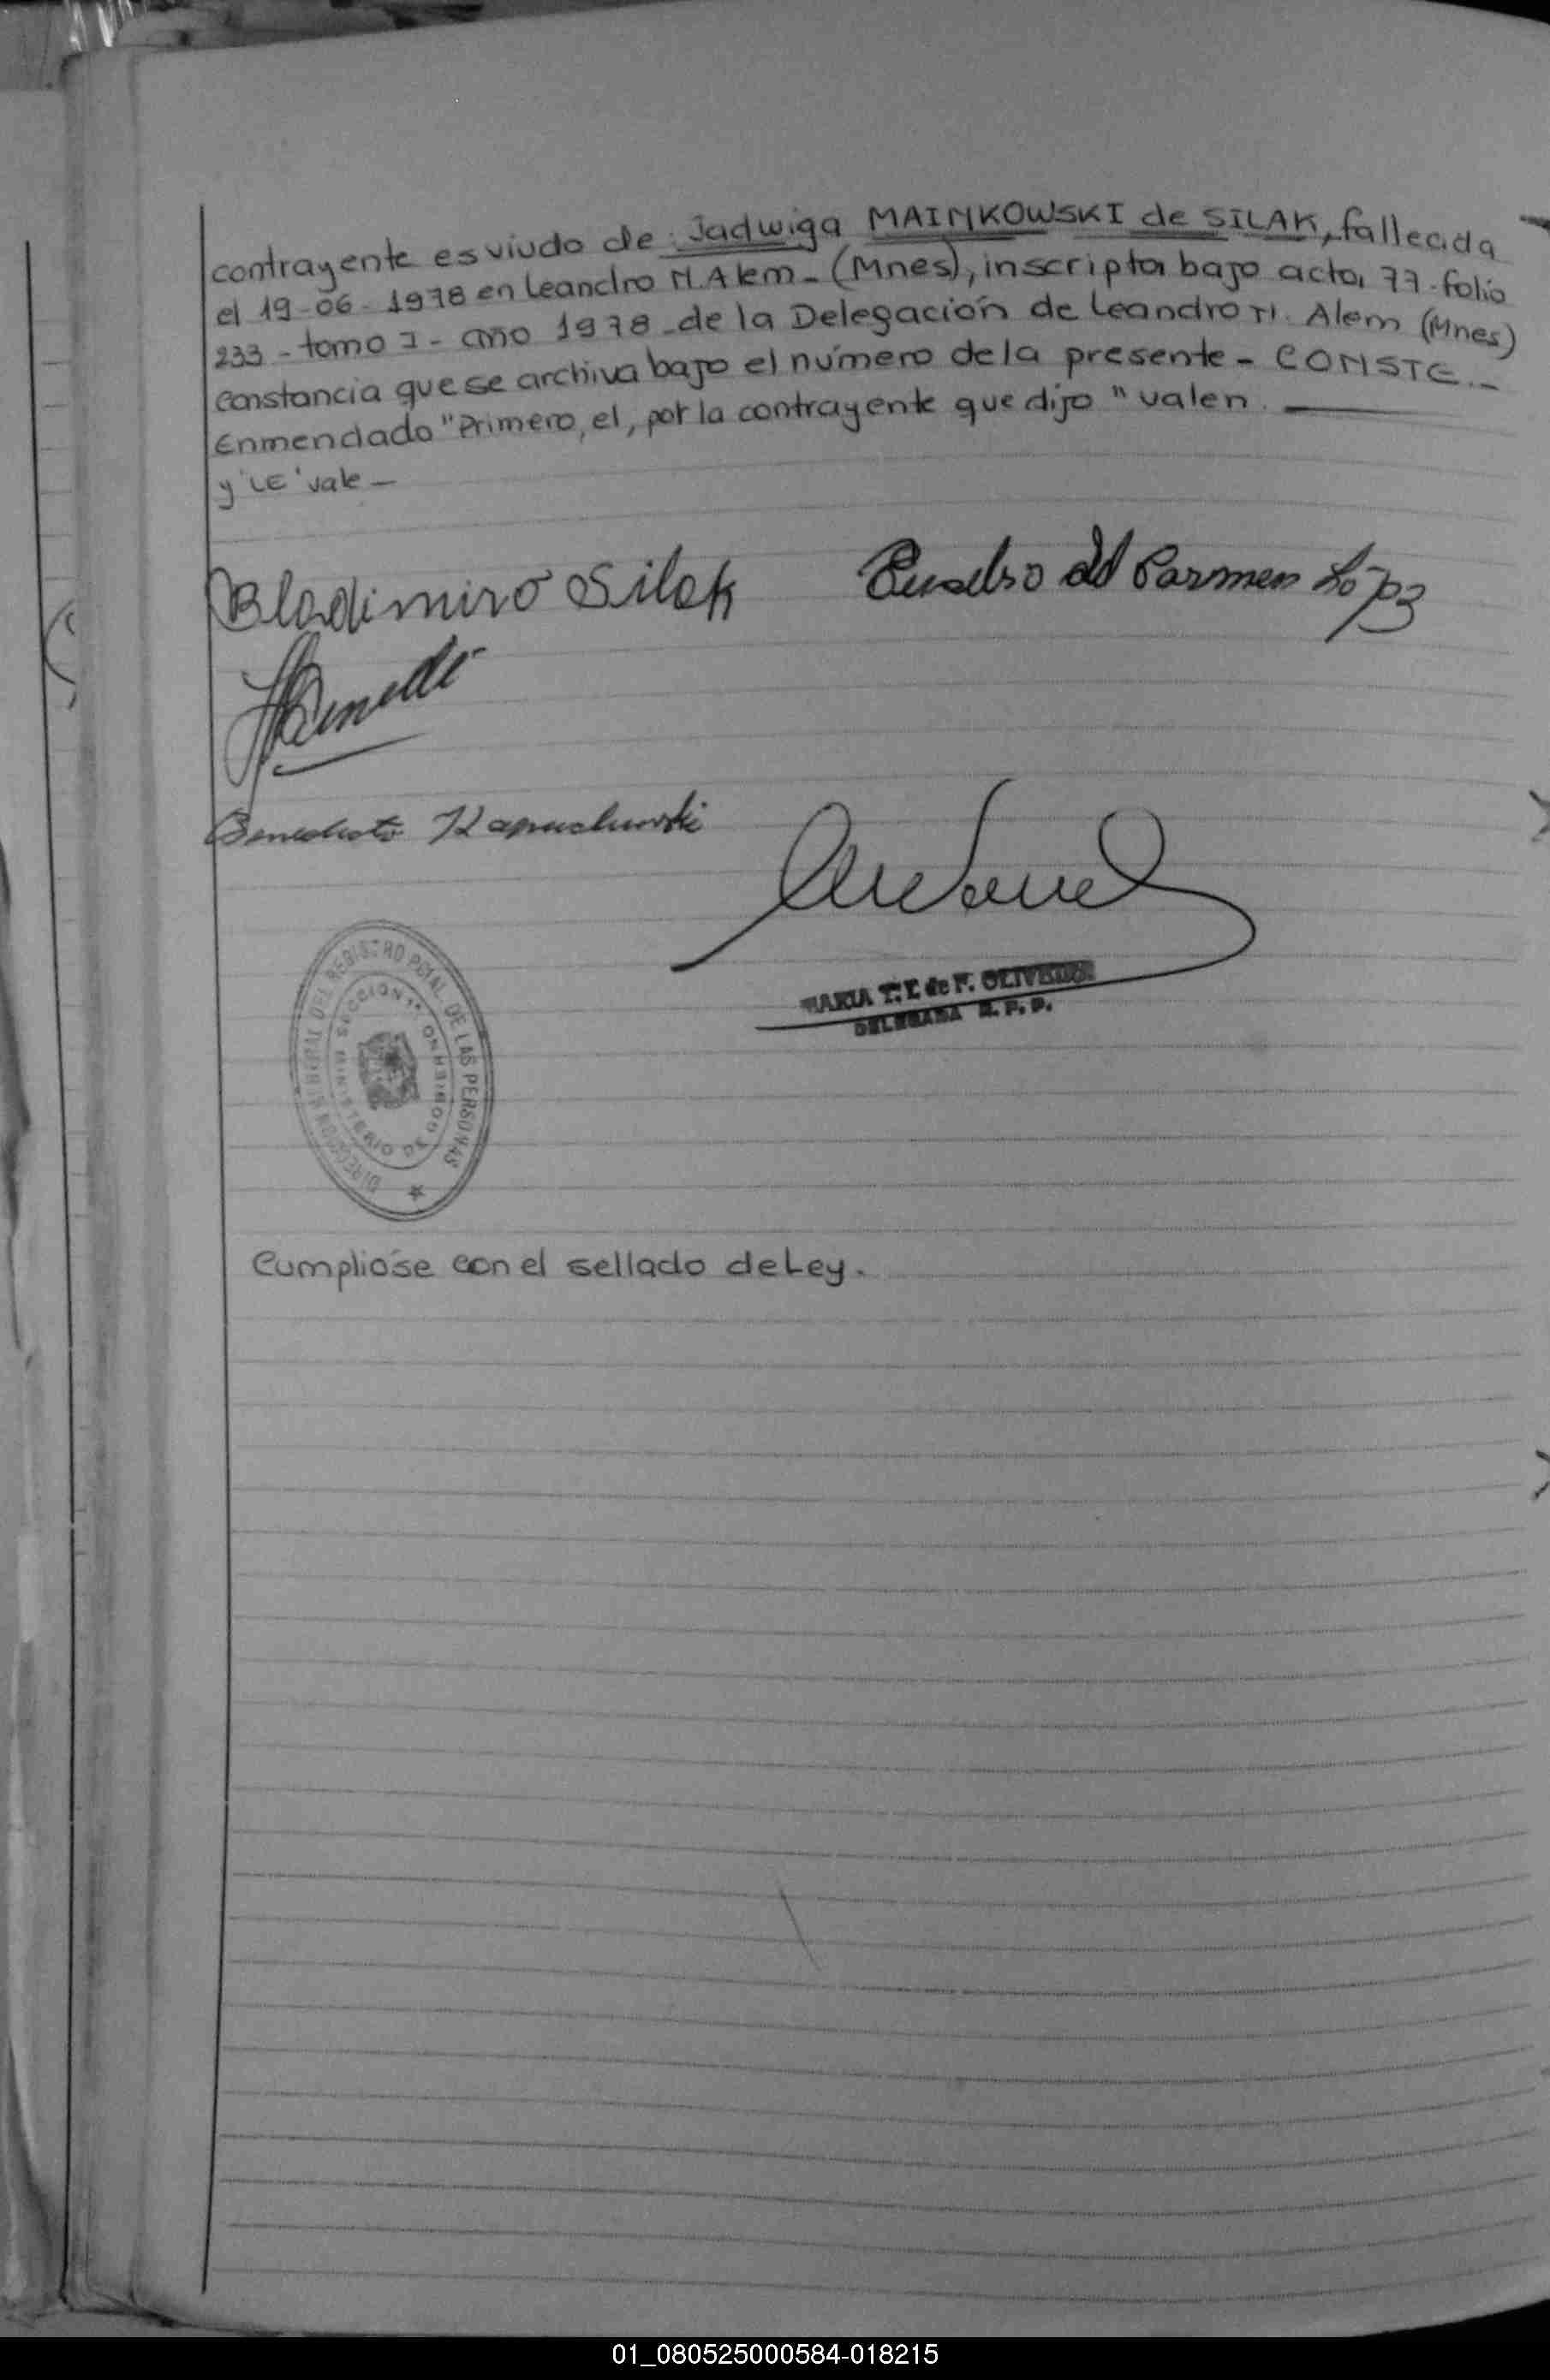 contrayente es viudo de: Jadwiga MAINKOWSKI de SILAK, fallecida
el 19-06-1978 en Leandro N. Alem - (Mnes), inscripta bajo acta, 77 - folio
233 - tomo I - año 1978 - de la Delegación de Leandro N. Alem (Mnes)
constancia que se archiva bajo el número de la presente - CONSTE.-
Enmendado "Primero, el, por la contrayente que dijo" valen.
y "LE" vale -
Bladimiro Silak
del Carmen López
Benedicto
MARIA T. T. de F. OLIVEIRA
DELEGADA R. P. P.
DIRECCION GENERAL DEL REGISTRO PCIAL. DE LAS PERSONAS
MINISTERIO DE GOBIERNO
SECCION 1ª
Cumplióse con el sellado de Ley.
01_080525000584-018215